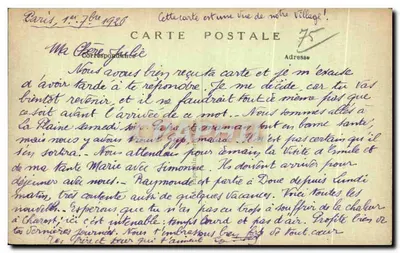 Paris, 1er 7bre 1926
Cette carte est une vue de notre village!
CARTE POSTALE
75
Correspondance
Adresse
Ma Chère Julie
Nous avons bien reçu ta carte et je m'excuse
d'avoir tardé à te répondre. Je me décide, car tu vas
bientôt revenir, et il ne faudrait tout de même pas que
ce soit avant l'arrivée de ce mot. Nous sommes allés à
la Plaine samedi
tout en bonne santé,
mais nous y avons
pas certain qu'il
s'en sortira. Nous attendons pour demain la visite d'Emile et
de ma tante Marie avec Simonne. Ils doivent arriver pour
déjeuner avec nous. Raymonde est partie à Doue depuis lundi
matin, très contente aussi de quelques vacances. Voici toutes les
nouvelles. J'espérais que tu n'as pas eu trop à souffrir de la chaleur
à ici c'est intenable: temps lourd et pas d'air. Profite bien de
tes dernières journées. Nous t'embrassons bien fort de tout cœur
Ton frère et sœur qui t'aiment